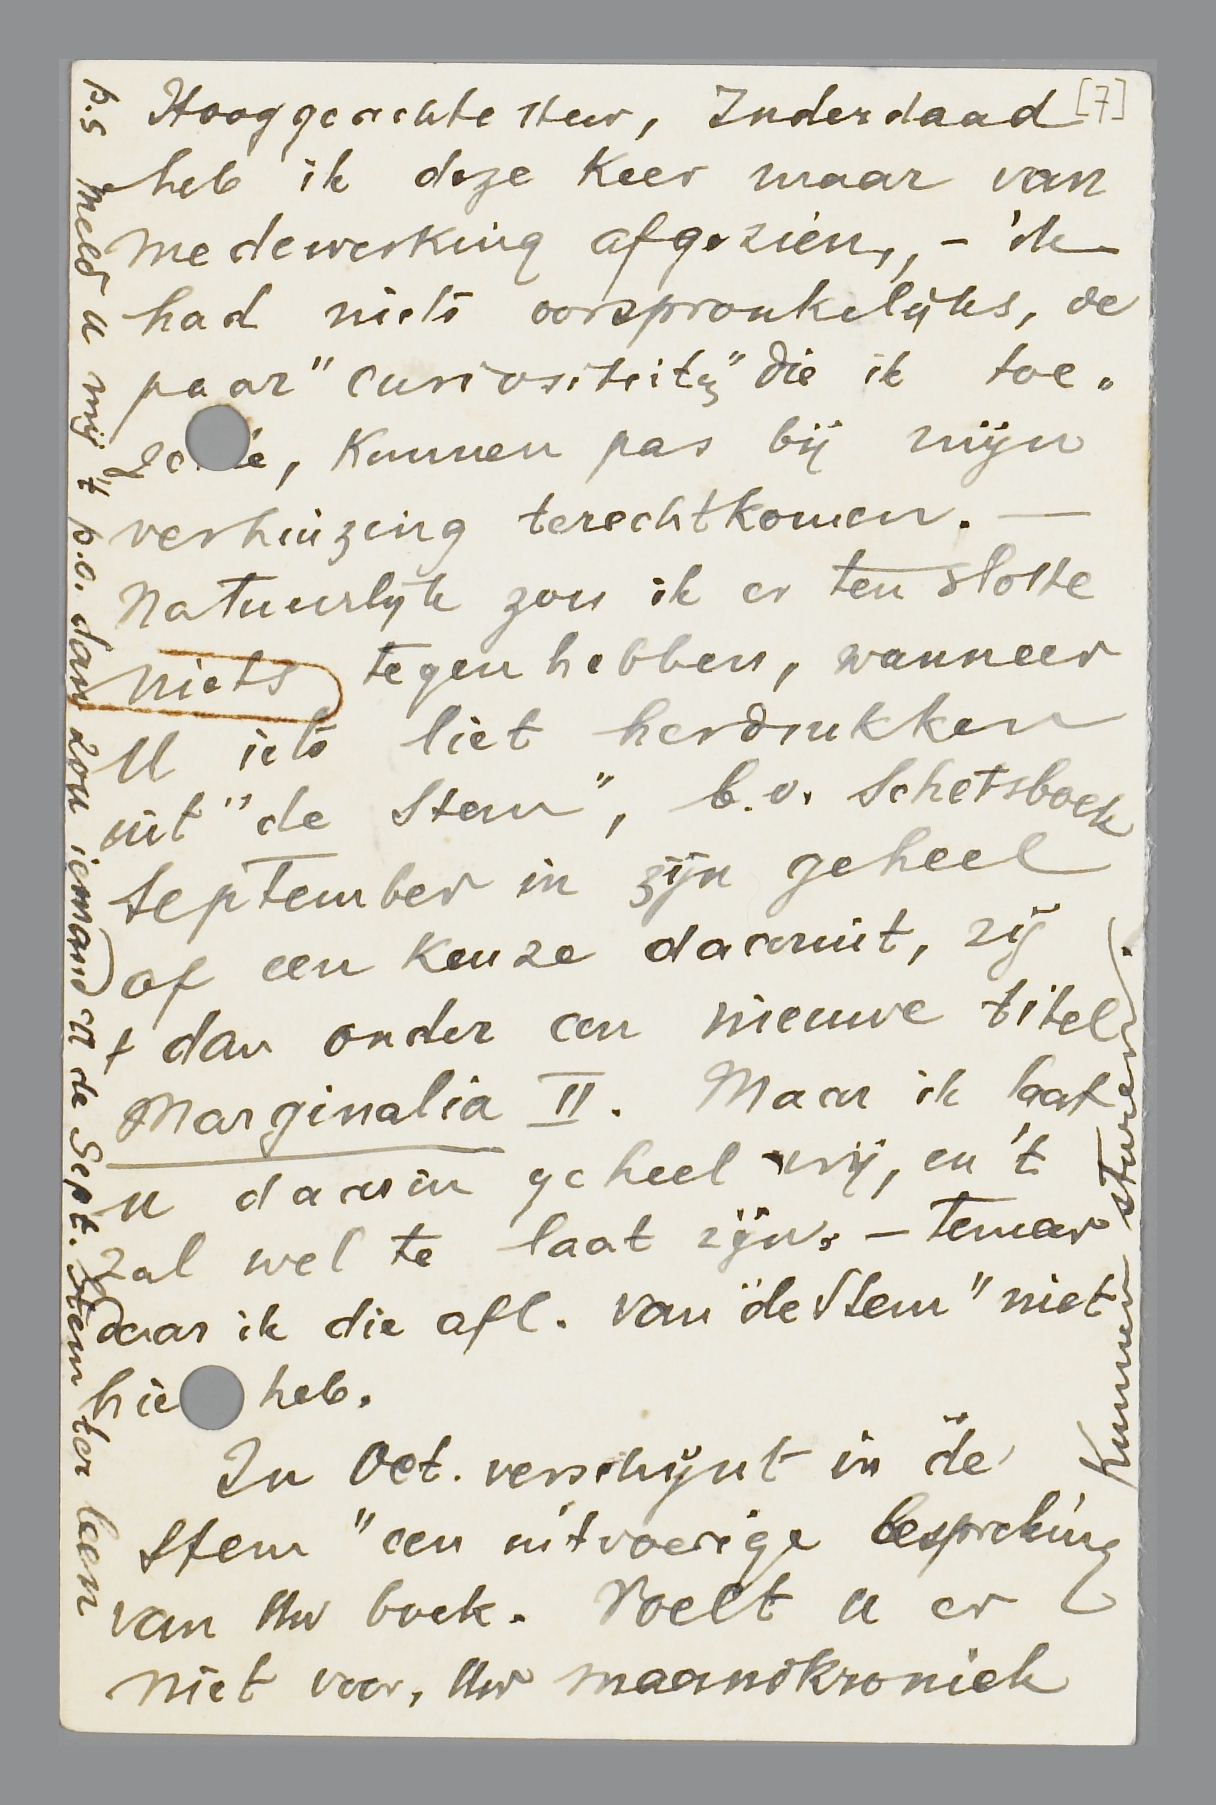 [7]
Hooggeachte Heer, Inderdaad
heb ik deze keer maar van
medewerking afgezien, - ik
had niets oorspronkelijks, de
paar "curiositeitn" die ik toe-
zei de, kunnen pas bij mijn
verhuizing terechtkomen. —
Natuurlijk zou ik er ten slotte
niets tegen hebben, wanneer
U iets liet herdrukken
uit "de Stem", b.v. Schetsboek
September in zijn geheel
of een keuze daaruit, zij
't dan onder een nieuwe titel
Marginalia II. Maar ik laat
u daarin geheel vrij, en 't
zal wel te laat zijn. - temeer
daar ik die afl. van "de Stem" niet
hier heb.
In Oct. verschijnt in "de
Stem" een uitvoerige bespreking
van Uw boek. Voelt u er
niet voor, Uw maandkroniek
p.s meld u mij 't p.o. dan zou iemand U de Sept. Stem ter leen
kunnen sturen.